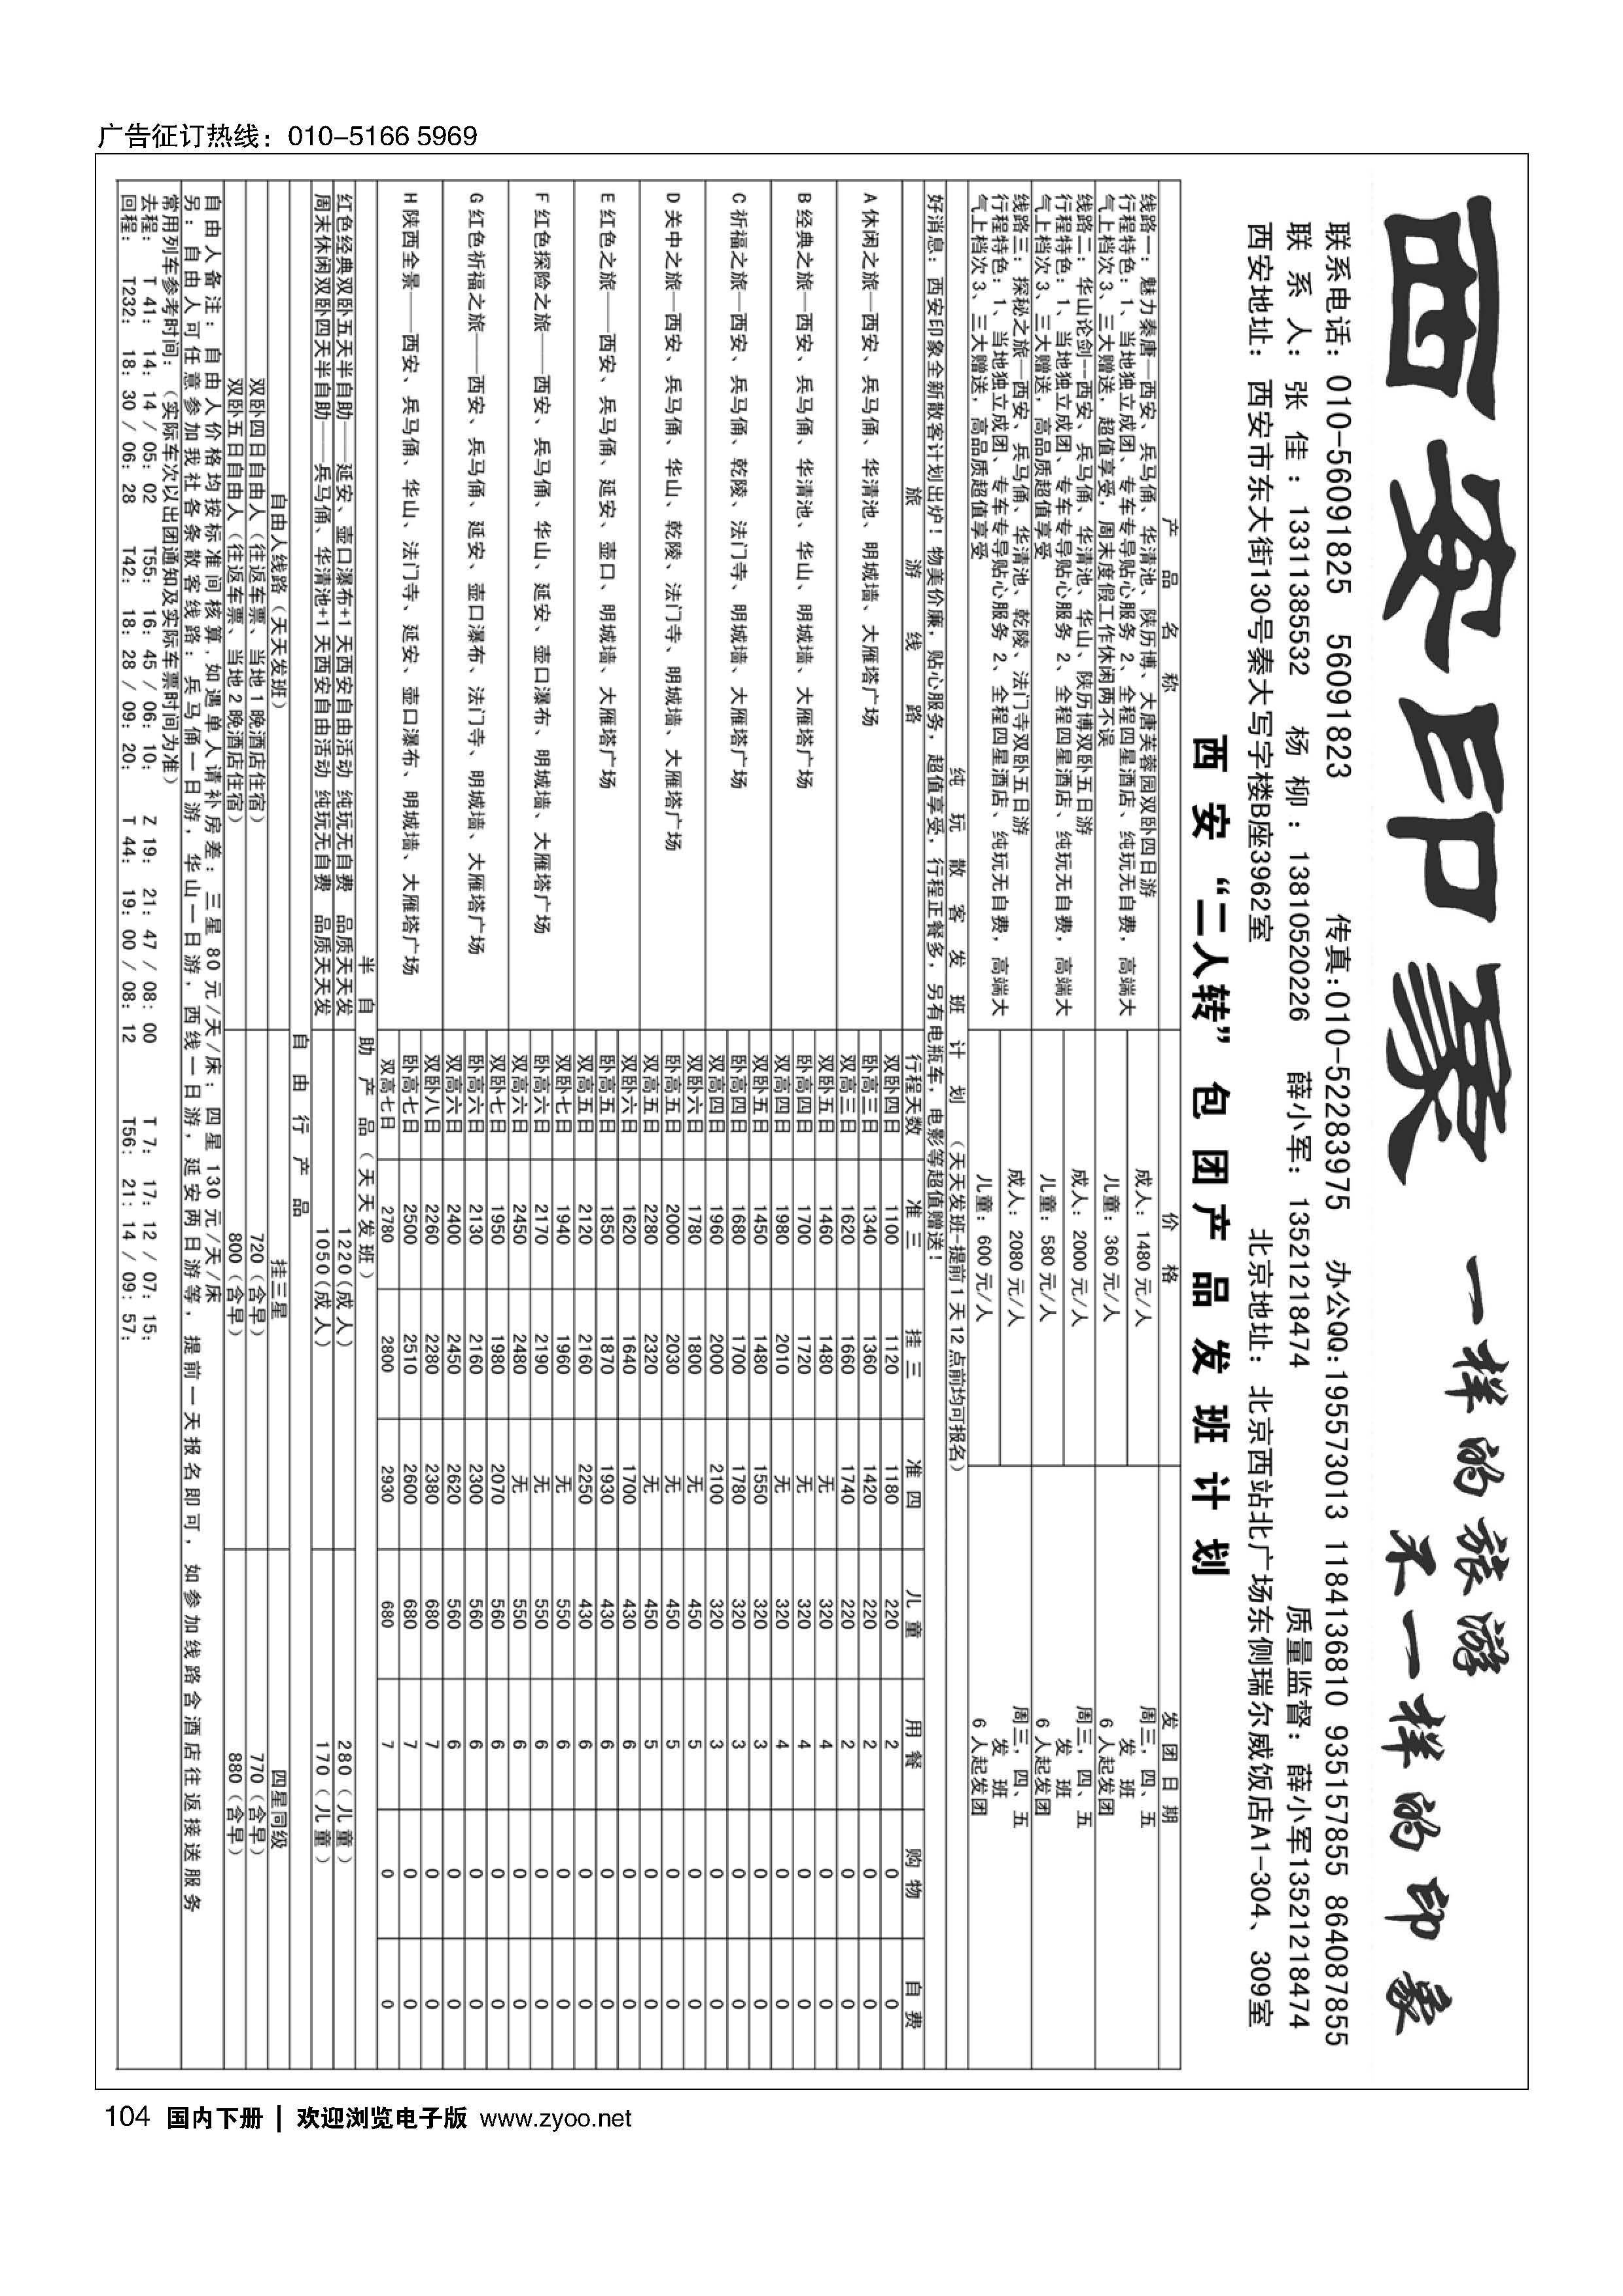 广告征订热线：010-5166 5969
西安印象 一样的旅游 不一样的印象
联系电话：010-56091825 56091823 传真:010-52283975 办公QQ:195573013 1184136810 935157855 864087855
联 系 人： 张 佳：13311385532 杨 柳：13810520226 薛小军：13521218474 质量监督：薛小军13521218474
西安地址：西安市东大街130号秦大写字楼B座3962室 北京地址：北京西站北广场东侧瑞尔威饭店A1-304、309室
西安“二人转”包团产品发班计划
产 品 名 称 价 格 发 团 日 期
线路一：魅力秦唐—西安、兵马俑、华清池、陕历博、大唐芙蓉园双卧四日游 成人：1480 元/人 周三，四、五
行程特色：1、当地独立成团、专车专导贴心服务 2、全程四星酒店、纯玩无自费，高端大 发 班
气上档次 3、三大赠送，超值享受，周末度假工作休闲两不误 儿童：360 元/人 6 人起发团
线路二：华山论剑--西安、兵马俑、华清池、华山、陕历博双卧五日游 成人：2000 元/人 周三，四、五
行程特色：1、当地独立成团、专车专导贴心服务 2、全程四星酒店、纯玩无自费，高端大 发 班
气上档次 3、三大赠送，高品质超值享受 儿童：580 元/人 6 人起发团
线路三：探秘之旅—西安、兵马俑、华清池、乾陵、法门寺双卧五日游 成人：2080 元/人 周三，四、五
行程特色：1、当地独立成团、专车专导贴心服务 2、全程四星酒店、纯玩无自费，高端大 发 班
气上档次 3、三大赠送，高品质超值享受 儿童：600 元/人 6 人起发团
纯 玩 散 客 发 班 计 划 （天天发班-提前 1 天 12 点前均可报名）
好消息：西安印象全新散客计划出炉！物美价廉，贴心服务，超值享受，行程正餐多，另有电瓶车，电影等超值赠送！
旅 游 线 路 行程天数 准 三 挂 三 准 四 儿 童 用 餐 购 物 自 费
A 休闲之旅—西安、兵马俑、华清池、明城墙、大雁塔广场 双卧四日 1100 1120 1180 220 2 0 0
卧高三日 1340 1360 1420 220 2 0 0
双高三日 1620 1660 1740 220 2 0 0
B 经典之旅—西安、兵马俑、华清池、华山、明城墙、大雁塔广场 双卧五日 1460 1480 无 320 4 0 0
卧高四日 1700 1720 无 320 4 0 0
双高四日 1980 2010 无 320 4 0 0
C 祈福之旅—西安、兵马俑、乾陵、法门寺、明城墙、大雁塔广场 双卧五日 1450 1480 1550 320 3 0 0
卧高四日 1680 1700 1780 320 3 0 0
双高四日 1960 2000 2100 320 3 0 0
D 关中之旅—西安、兵马俑、华山、乾陵、法门寺、明城墙、大雁塔广场 双卧六日 1780 1800 无 450 5 0 0
卧高五日 2000 2030 无 450 5 0 0
双高五日 2280 2320 无 450 5 0 0
E 红色之旅——西安、兵马俑、延安、壶口、明城墙、大雁塔广场 双卧六日 1620 1640 1700 430 6 0 0
卧高五日 1850 1870 1930 430 6 0 0
双高五日 2120 2160 2250 430 6 0 0
F 红色探险之旅——西安、兵马俑、华山、延安、壶口瀑布、明城墙、大雁塔广场 双卧七日 1940 1960 无 550 6 0 0
卧高六日 2170 2190 无 550 6 0 0
双高六日 2450 2480 无 550 6 0 0
G 红色祈福之旅——西安、兵马俑、延安、壶口瀑布、法门寺、明城墙、大雁塔广场 双卧七日 1950 1980 2070 560 6 0 0
卧高六日 2130 2160 2300 560 6 0 0
双高六日 2400 2450 2620 560 6 0 0
H 陕西全景——西安、兵马俑、华山、法门寺、延安、壶口瀑布、明城墙、大雁塔广场 双卧八日 2260 2280 2380 680 7 0 0
卧高七日 2500 2510 2600 680 7 0 0
双高七日 2780 2800 2930 680 7 0 0
半 自 助 产 品（天天发班）
红色经典双卧五天半自助——延安、壶口瀑布+1 天西安自由活动 纯玩无自费 品质天天发 1220(成人) 280（儿童）
周末休闲双卧四天半自助——兵马俑、华清池+1 天西安自由活动 纯玩无自费 品质天天发 1050(成人) 170（儿童）
自 由 行 产 品
自由人线路（天天发班） 挂三星 四星同级
双卧四日自由人（往返车票、当地 1 晚酒店住宿） 720（含早） 770（含早）
双卧五日自由人（往返车票、当地 2 晚酒店住宿） 800（含早） 880（含早）
自由人备注：自由人价格均按标准间核算，如遇单人请补房差：三星 80 元/天/床；四星 130 元/天/床
另：自由人可任意参加我社各条散客线路：兵马俑一日游，华山一日游，西线一日游，延安两日游等，提前一天报名即可，如参加线路含酒店往返接送服务
常用列车参考时间：（实际车次以出团通知及实际车票时间为准）
去程： T 41： 14：14 / 05：02 T55： 16：45 / 06：10： Z 19： 21：47 / 08：00 T 7： 17：12 / 07：15：
回程： T232： 18：30 / 06：28 T42： 18：28 / 09：20： T 44： 19：00 / 08：12 T56： 21：14 / 09：57：
104 国内下册 | 欢迎浏览电子版 www.zyoo.net